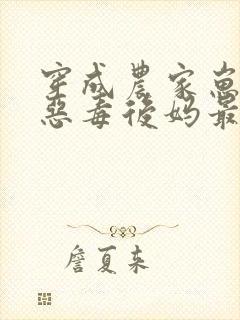 穿成農家崽
惡毒後媽最
詹夏来